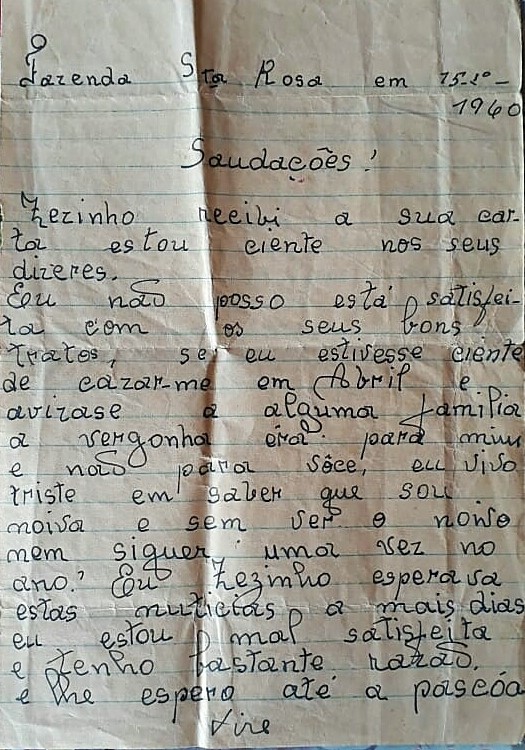 Fazenda Sta Rosa em
1960
Saudações!
Zezinho recibi a sua car-
ta estou ciente nos seus
dizeres.
Eu não posso está satisfei-
ta com os seus bons
tratos, se eu estivesse ciente
de cazar-me em Abril e
avizase a alguma familia
a vergonha éra para mim
e não para vôce, eu vivo
triste em saber que sou
noiva e sem ver o noivo
nem siquer uma vez no
ano. Eu Zezinho esperava
estas a mais dias
eu estou mal satisfeita
e tenho bastante razão.
e lhe espero até a pascóa